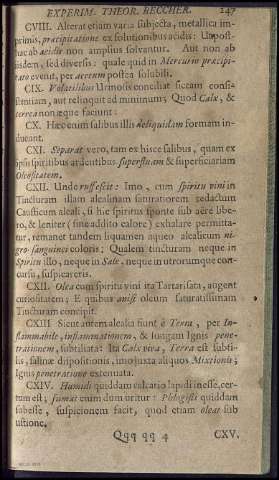 EXPERIM. THEOR. BECCHER. 247
CVIII. Alterat etiam varia subjecta, metallica im-
primis, præcipitatione ex solutionibus acidis: Ut post-
hac ab acidis non amplius solvantur. Aut non ab
iisdem, sed diversis: quale quid in Mercurio præcipi-
tato evenit, per acetum postea solubili.
CIX. Volatilibus Urinosis conciliat siccam consi-
stentiam, aut relinquit ad minimum; Quod Calx, &
terrea non æque faciunt:
CX. Hæc enim salibus illis deliquidam formam in-
ducant.
CXI. Separat vero, tam ex hisce salibus, quam ex
ipsis spiritibus ardentibus superfluam & superficiariam
Oleositatem.
CXII. Unde ruffescit: Imo, cum spiritu vini in
Tincturam illam alcalinam saturatiorem redactum
Causticum alcali, si hic spiritus sponte sub aëre libe-
ro, & leniter (sine addito calore) exhalare permitta-
tur, remanet tandem liquamen aqueo alcalicum ni-
gro-sanguineo coloris; Qualem tincturam neque in
Spiritu illo, neque in Sale, neque in utrorumque con-
cursu, suspicaveris.
CXII. Olea cum spiritu vini ita Tartarisata, augent
curiositatem; E quibus anisi oleum saturatissimam
Tincturam concipit.
CXIII Sicut autem alcalia sunt è Terra, per In-
flammabile, inflammationem, & longam Ignis pene-
trationem, subtiliata: Ita Calx viva, Terra est subti-
lis, salinæ dispositionis, imo juxta aliquos Mixtionis;
Ignis penetratione extenuata.
CXIV. Humidi quiddam calcario lapidi inesse, cer-
tum est; fumat enim dum uritur: Phlogisti quiddam
subesse, suspicionem facit, quod etiam oleat sub
ustione.
Qqq qq 4 CXV.